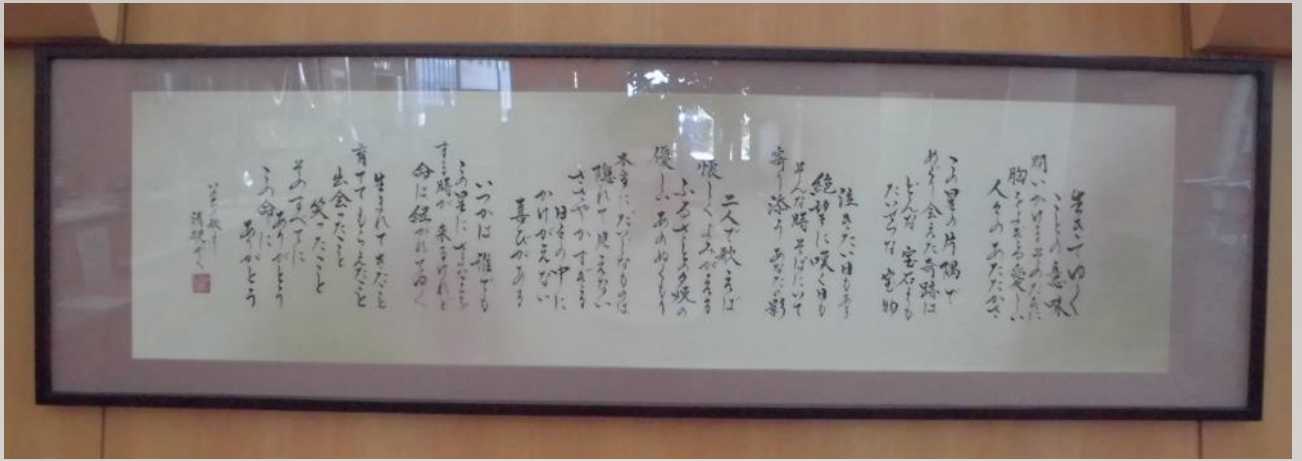 生きてゆく
ことの意味
問いかけるそのたびに
胸をよぎる愛しい
人々のあたたかさ
この星の片隅で
めぐり会えた奇跡は
どんな宝石よりも
たいせつな宝物
泣きたい日もある
絶望に嘆く日も
そんな時そばにいて
寄り添うあなたの影
二人で歌えば
懐かしくよみがえる
ふるさとの夕焼の
優しいあのぬくもり
本当にだいじなものは
隠れて見えない
ささやかすぎる
日々の中に
かけがえない
喜びがある
いつかは誰でも
この星にさよならを
する時が来るけれど
命は継がれてゆく
生まれてきたこと
育ててもらえたこと
出会ったこと
笑ったこと
そのすべてに
ありがとう
この命に
ありがとう